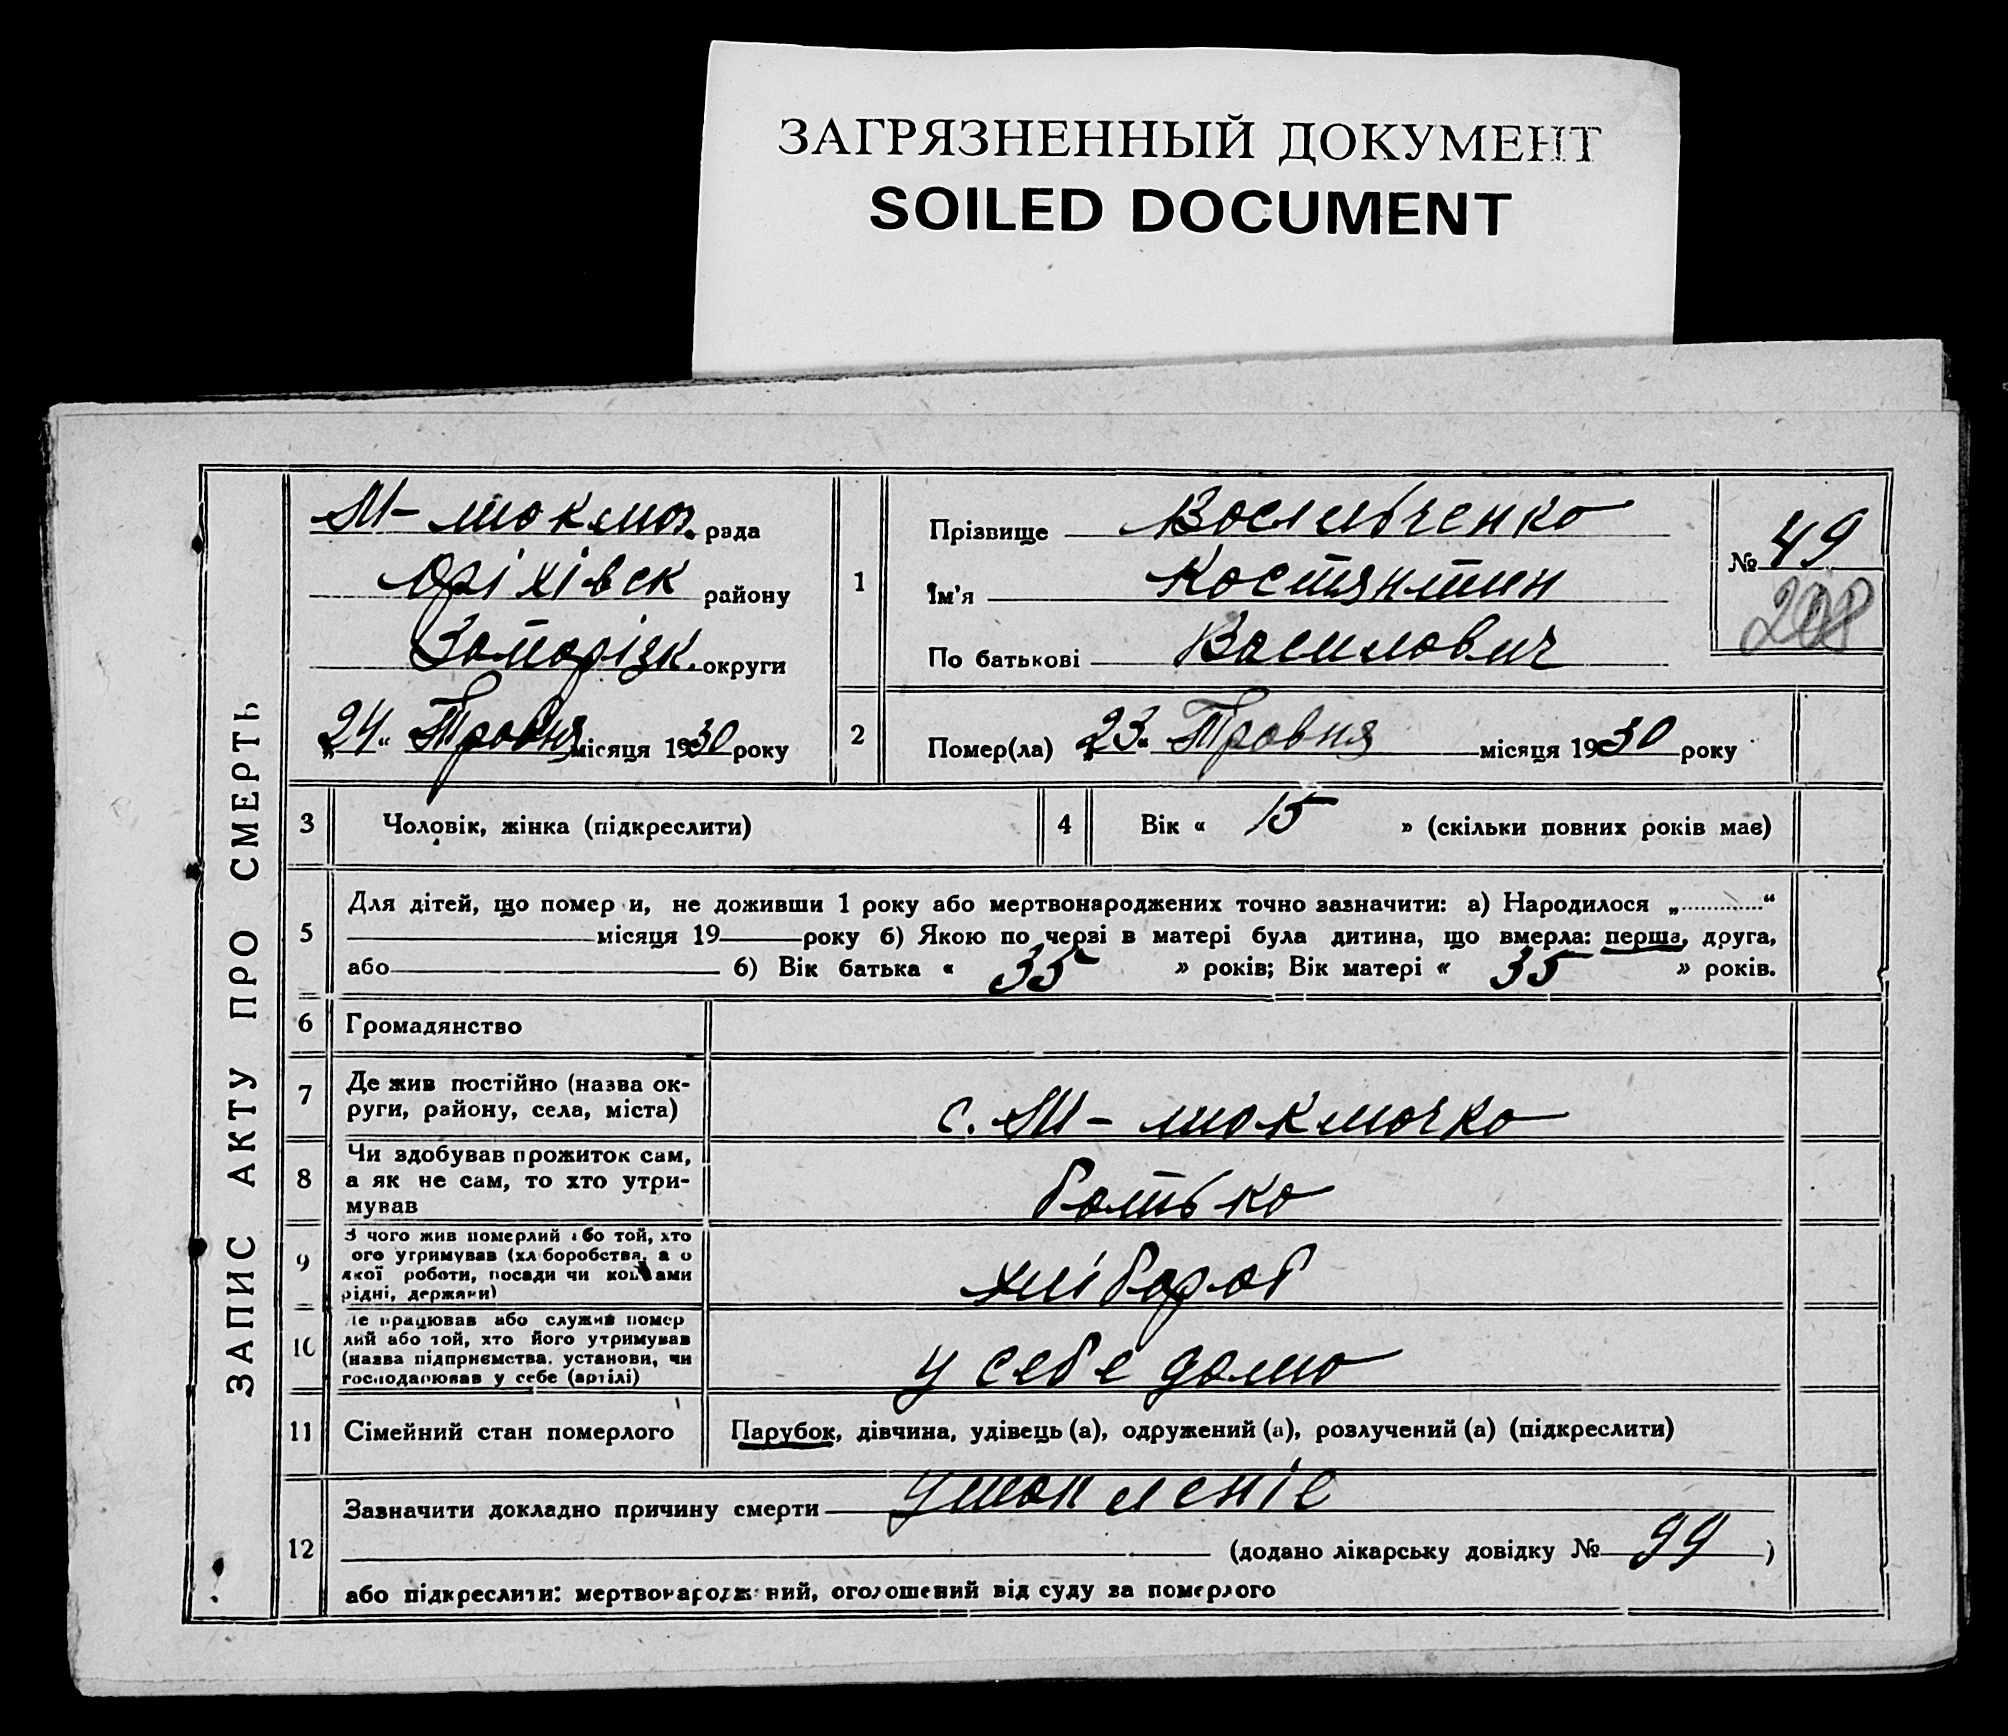 ЗАГРЯЗНЕННЫЙ ДОКУМЕНТ
SOILED DOCUMENT
ЗАПИС АКТУ ПРО СМЕРТЬ
М-токмоч. рада
Оріхівск району
Запоріzк. округи
„24“ Травня місяця 1930 року
1
Прізвище Васильченко
Ім'я Костянтин
По батькові Василович
№ 49
208
2
Помер(ла) „23“ Травня місяця 1930 року
3 Чоловік, жінка (підкреслити)
4 Вік « 15 » (скільки повних років має)
5
Для дітей, що помер и, не доживши 1 року або мертвонароджених точно зазначити: а) Народилося „............“
місяця 19 року б) Якою по черзі в матері була дитина, що вмерла: перша, друга,
або б) Вік батька « 35 » років; Вік матері « 35 » років.
6 Громадянство
7
Де жив постійно (назва ок-
руги, району, села, міста)
с. М-токмачка
8
Чи здобував прожиток сам,
а як не сам, то хто утри-
мував
батько
9
З чого жив померлий або той, хто
ого утримував (хліборобства, а о
якої роботи, посади чи коштами
рідні, держави)
хлібороб
10
Де працював або служив помер
лий або той, хто його утримував
(назва підприємства, установи, чи
господарював у себе (артілі)
у себе дома
11 Сімейний стан померлого
Парубок, дівчина, удівець (а), одружений (а), розлучений (а) (підкреслити)
12
Зазначити докладно причину смерти утопленіе
(додано лікарську довідку № 99 )
або підкреслити: мертвонароджений, оголошений від суду за померлого